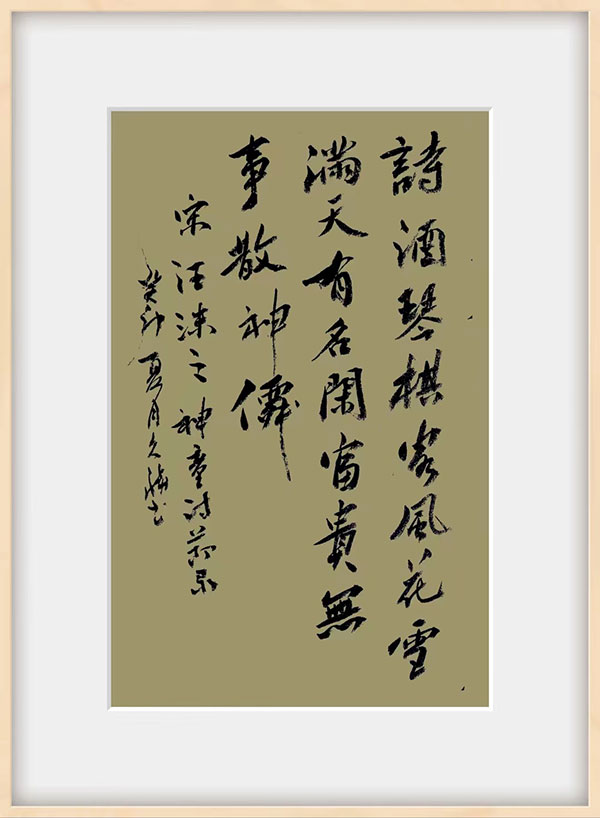 詩酒琴棋客風花雪
滿天有名閑富貴無
事散神僊
宋汪洙之神童诗节录
癸卯夏月久海书